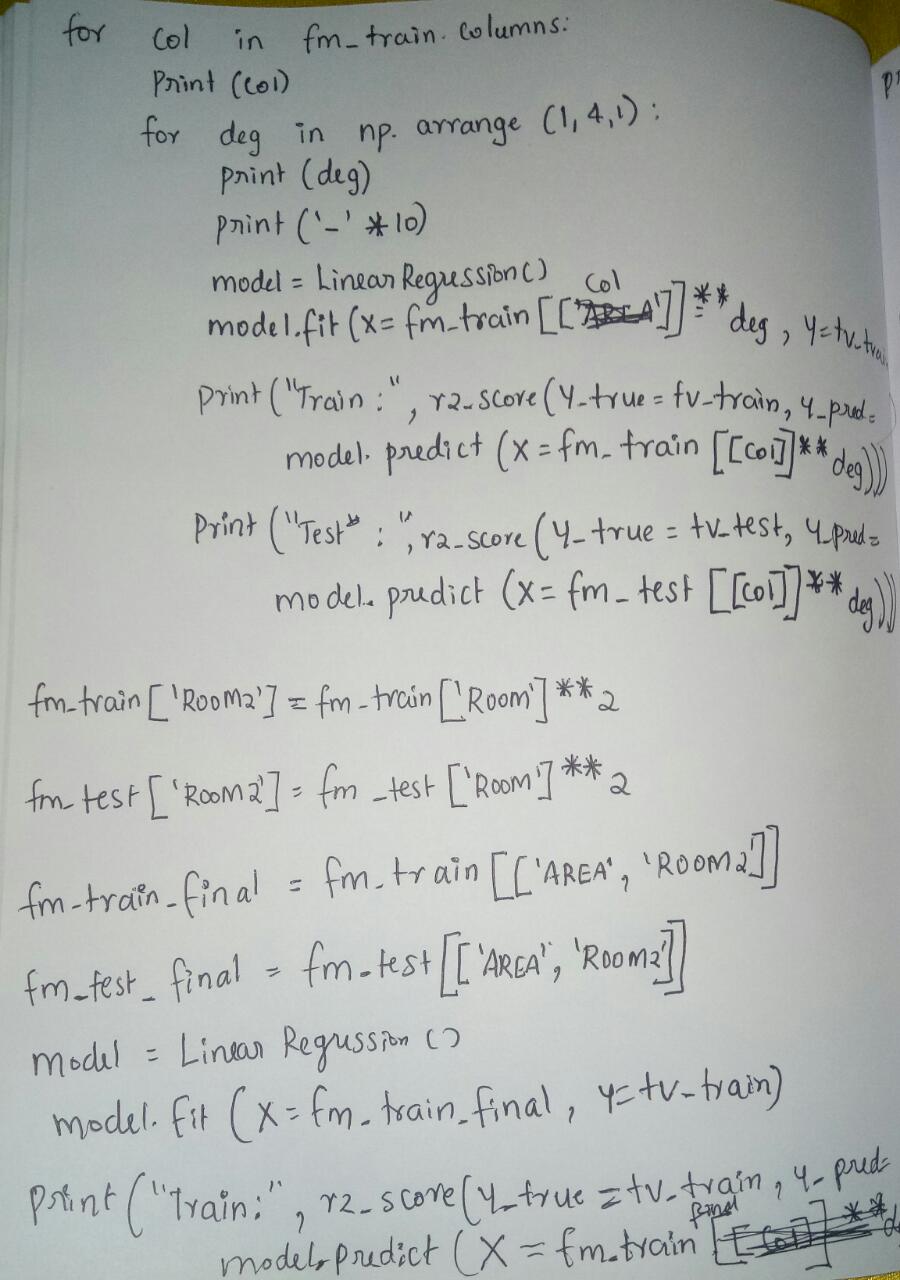 for col in fm_train.columns:
Print (col)
for deg in np.arrange (1,4,1):
print (deg)
print ('-' *10)
model = LinearRegression()
col
model.fit (X= fm_train [['AREA']]** deg, y=tv_trai
Print ("Train:", r2_score (y_true = tv_train, y_pred=
model.predict (X = fm_train [[col]]** deg)))
Print ("Test:", r2_score (y_true = tv_test, y_pred=
model.predict (X= fm_test [[col]]** deg)))
fm_train ['ROOM2'] = fm_train ['Room'] ** 2
fm_test ['ROOM2'] = fm_test ['Room'] ** 2
fm_train_final = fm_train [['AREA', 'ROOM2']]
fm_test_final = fm_test [['AREA', 'ROOM2']]
model = Linear Regression ()
model.fit (X=fm_train_final, y=tv_train)
print ("Train:", r2_score (y_true = tv_train, y_pred=
final
model.predict (X = fm_train [[col]] ** d